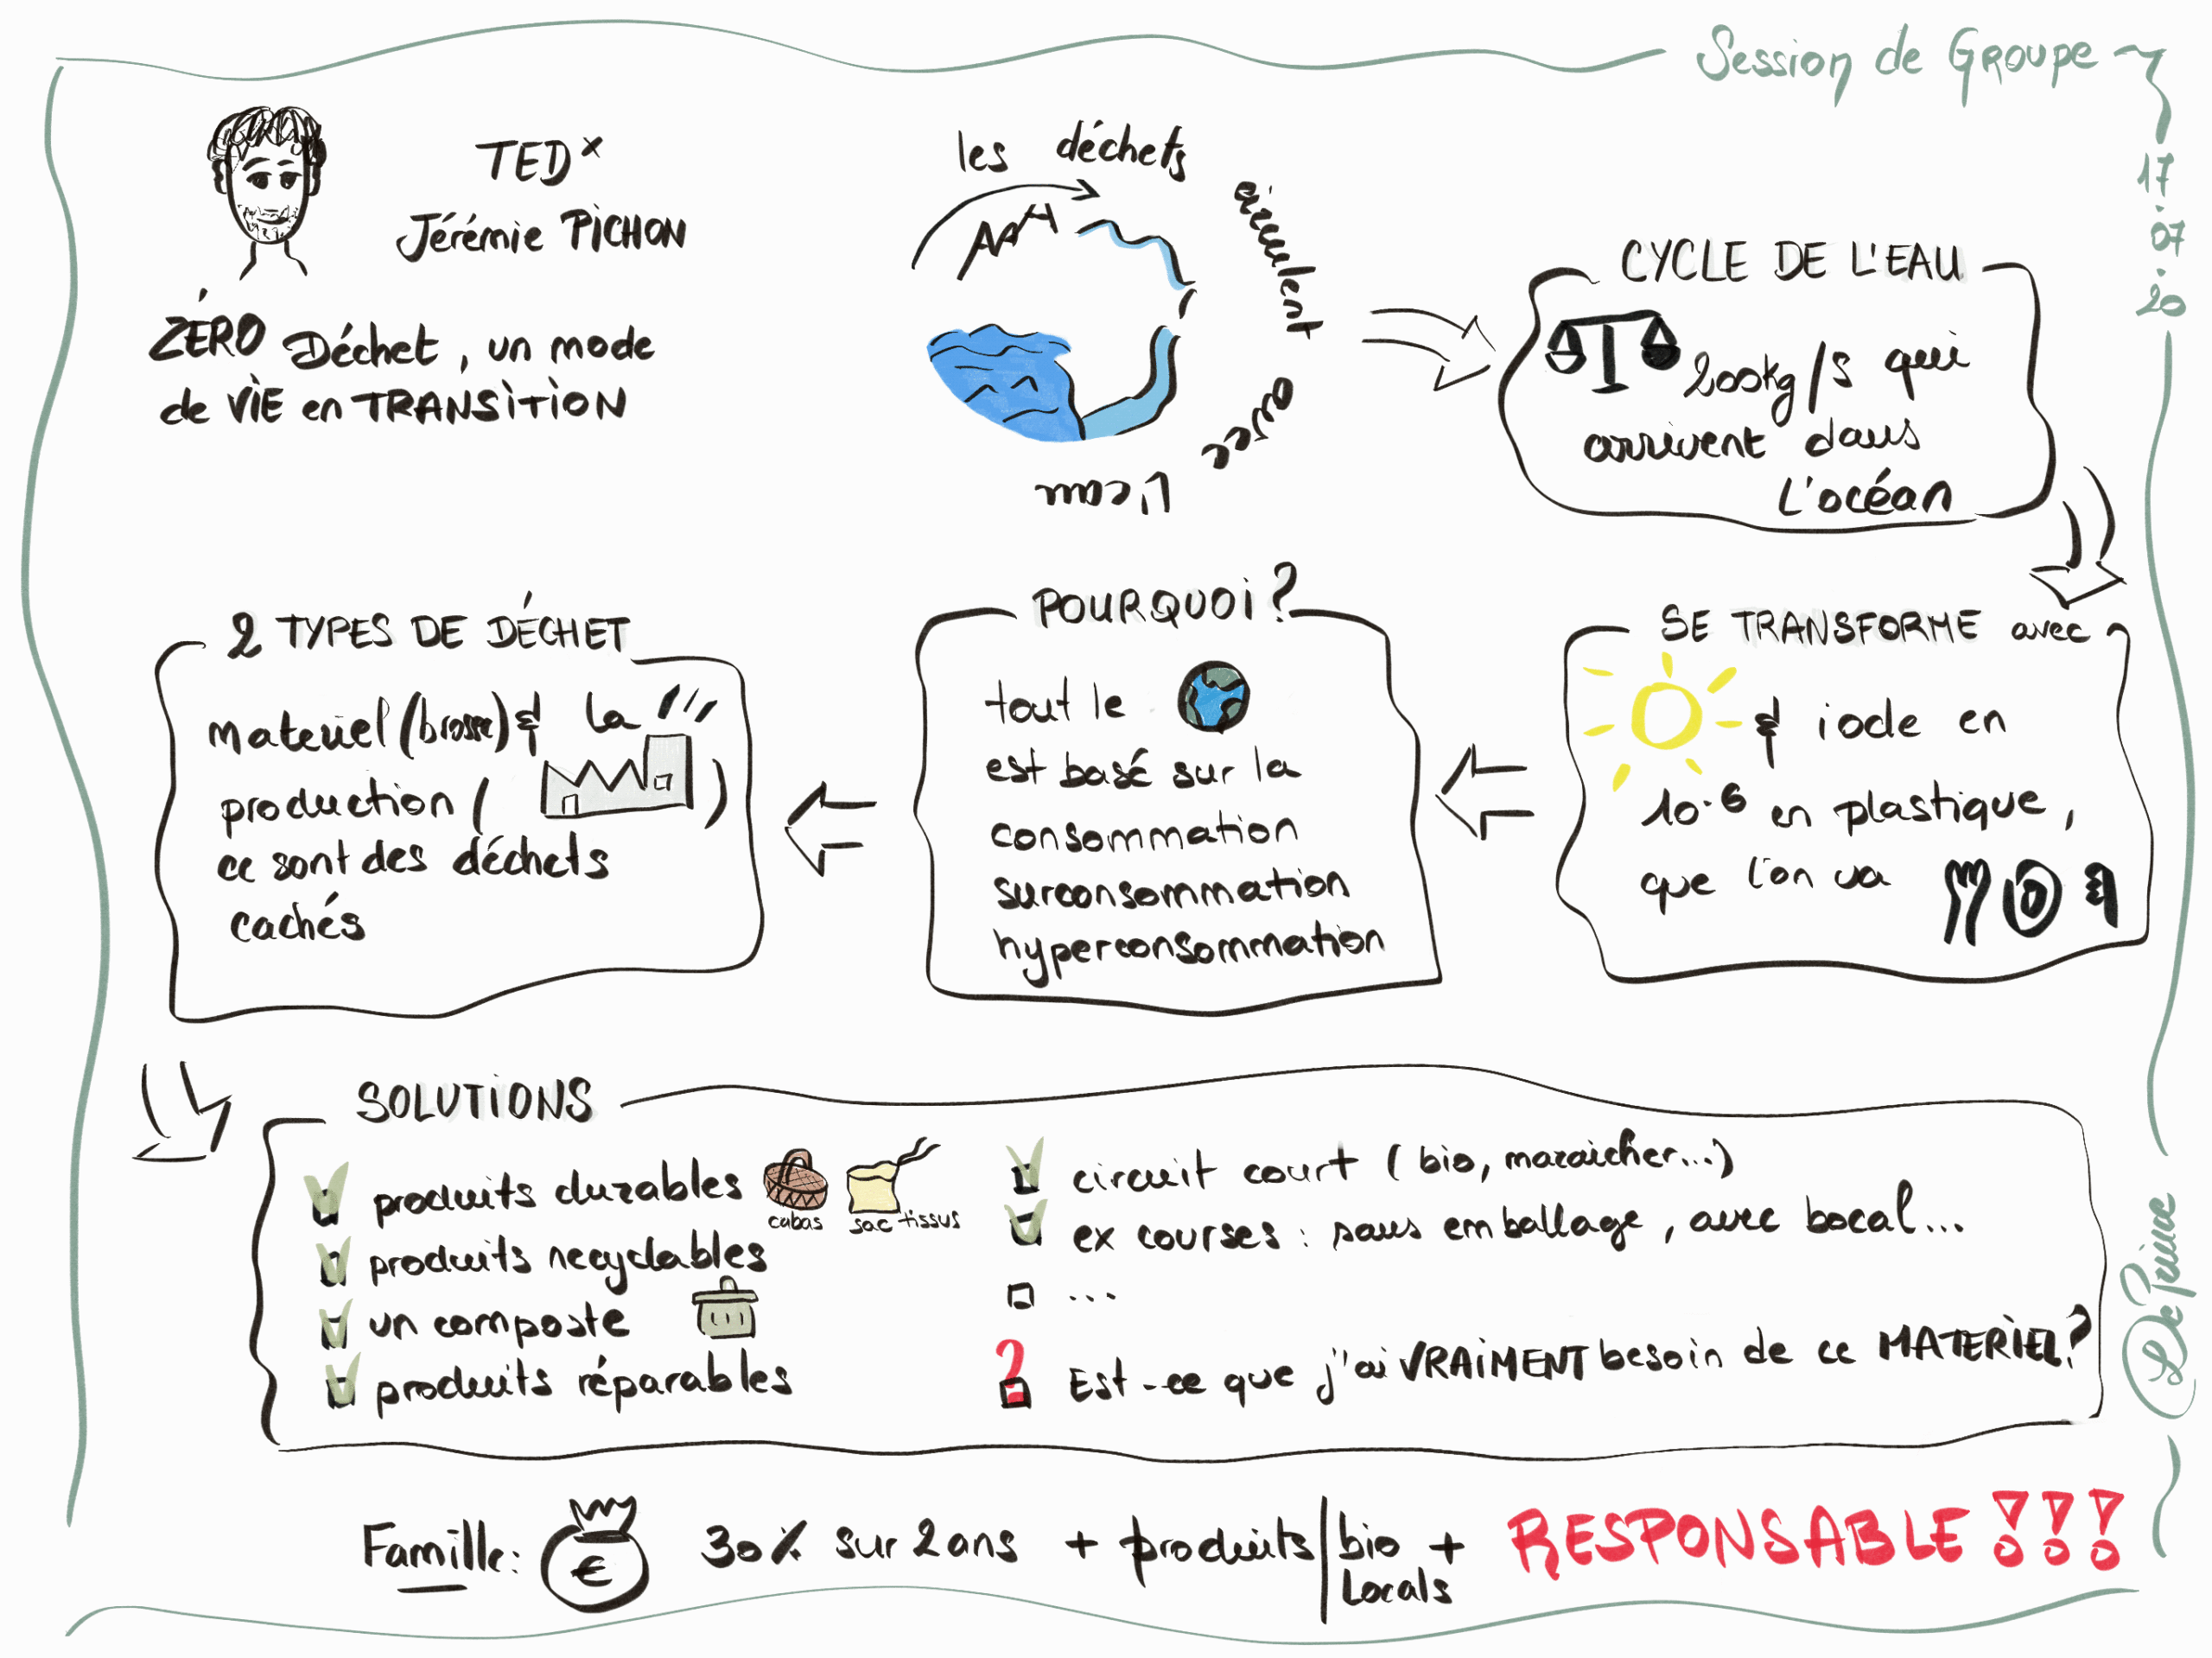 Session de Groupe
17.07.20
TEDx
Jérémie PICHON
ZÉRO Déchet, un mode
de ViE en TRANSiTiON
les déchets circulent avec l'eau
CYCLE DE L'EAU
200kg/s qui
arrivent dans
L'océan
SE TRANSFORME avec
& iode en
10.6 en plastique,
que l'on va
POURQUOi ?
tout le
est basé sur la
consommation
surconsommation
hyperconsommation
2 TYPES DE DÉCHET
materiel (brosse) & la
production ( )
ce sont des déchets
cachés
SOLUTiONS
produits durables
cabas
sac tissus
produits recyclables
un composte
produits réparables
circuit court (bio, maraicher...)
ex courses : sans emballage, avec bocal...
...
? Est-ce que j'ai VRAiMENT besoin de ce MATERiEL ?
Famille : € 30% sur 2 ans + produits | bio +
Locals
RESPONSABLE !!!